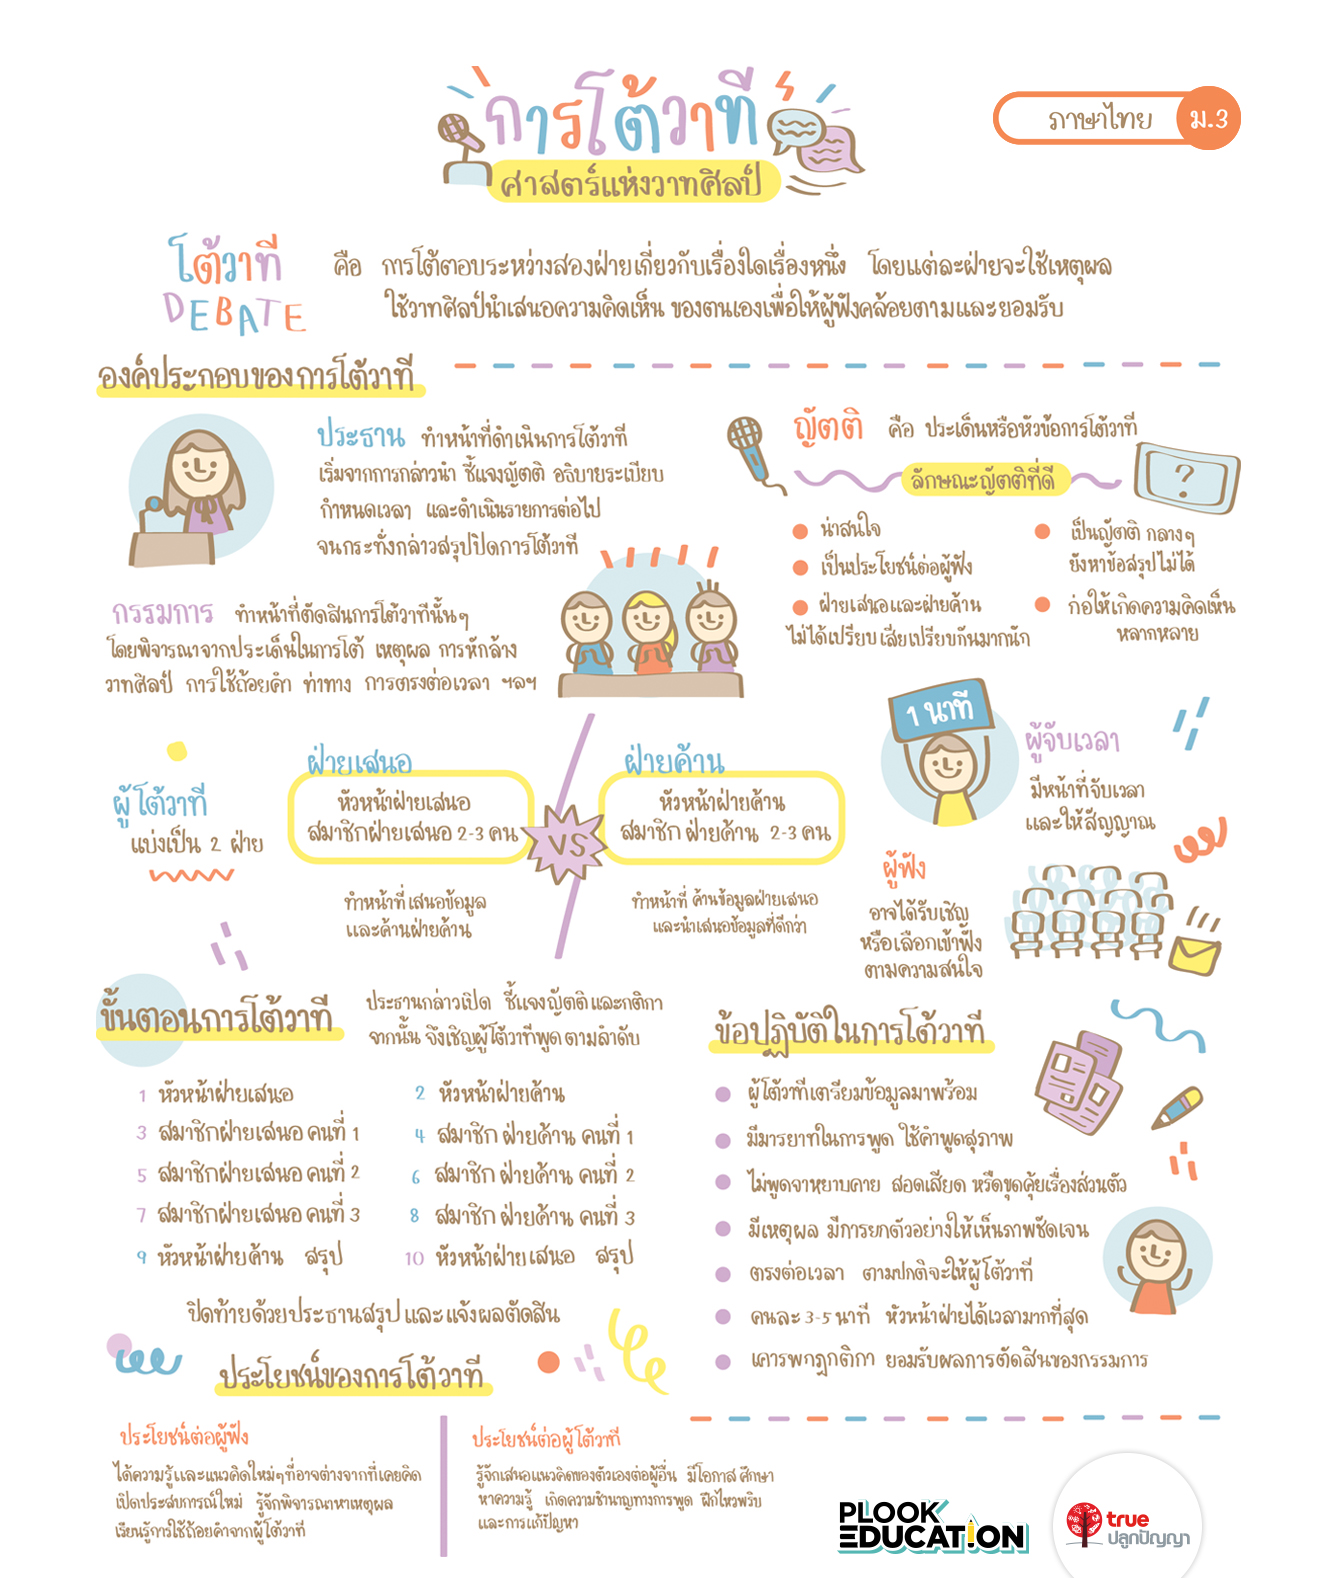 การโต้วาที
ศาสตร์แห่งวาทศิลป์
ภาษาไทย ม.3
โต้วาที
DEBATE
คือ การโต้ตอบระหว่างสองฝ่ายเกี่ยวกับเรื่องใดเรื่องหนึ่ง โดยแต่ละฝ่ายจะใช้เหตุผล
ใช้วาทศิลป์นำเสนอความคิดเห็น ของตนเองเพื่อให้ผู้ฟังคล้อยตามและยอมรับ
องค์ประกอบของการโต้วาที
ประธาน ทำหน้าที่ดำเนินการโต้วาที
เริ่มจากการกล่าวนำ ชี้แจงญัตติ อธิบายระเบียบ
กำหนดเวลา และดำเนินรายการต่อไป
จนกระทั่งกล่าวสรุปปิดการโต้วาที
กรรมการ ทำหน้าที่ตัดสินการโต้วาทีนั้นๆ
โดยพิจารณาจากประเด็นในการโต้ เหตุผล การหักล้าง
วาทศิลป์ การใช้ถ้อยคำ ท่าทาง การตรงต่อเวลา ฯลฯ
ญัตติ คือ ประเด็นหรือหัวข้อการโต้วาที
ลักษณะญัตติที่ดี
?
น่าสนใจ
เป็นประโยชน์ต่อผู้ฟัง
ฝ่ายเสนอและฝ่ายค้าน
ไม่ได้เปรียบเสียเปรียบกันมากนัก
เป็นญัตติ กลางๆ
ยังหาข้อสรุปไม่ได้
ก่อให้เกิดความคิดเห็น
หลากหลาย
ผู้โต้วาที
แบ่งเป็น 2 ฝ่าย
ฝ่ายเสนอ
หัวหน้าฝ่ายเสนอ
สมาชิกฝ่ายเสนอ 2-3 คน
ทำหน้าที่เสนอข้อมูล
และค้านฝ่ายค้าน
VS
ฝ่ายค้าน
หัวหน้าฝ่ายค้าน
สมาชิก ฝ่ายค้าน 2-3 คน
ทำหน้าที่ ค้านข้อมูลฝ่ายเสนอ
และนำเสนอข้อมูลที่ดีกว่า
1 นาที
ผู้จับเวลา
มีหน้าที่จับเวลา
และให้สัญญาณ
ผู้ฟัง
อาจได้รับเชิญ
หรือเลือกเข้าฟัง
ตามความสนใจ
ขั้นตอนการโต้วาที
ประธานกล่าวเปิด ชี้แจงญัตติและกติกา
จากนั้น จึงเชิญผู้โต้วาทีพูดตามลำดับ
1 หัวหน้าฝ่ายเสนอ
2 หัวหน้าฝ่ายค้าน
3 สมาชิกฝ่ายเสนอ คนที่ 1
4 สมาชิก ฝ่ายค้าน คนที่ 1
5 สมาชิกฝ่ายเสนอ คนที่ 2
6 สมาชิก ฝ่ายค้าน คนที่ 2
7 สมาชิกฝ่ายเสนอ คนที่ 3
8 สมาชิก ฝ่ายค้าน คนที่ 3
9 หัวหน้าฝ่ายค้าน สรุป
10 หัวหน้าฝ่ายเสนอ สรุป
ปิดท้ายด้วยประธานสรุป และแจ้งผลตัดสิน
ข้อปฏิบัติในการโต้วาที
ผู้โต้วาทีเตรียมข้อมูลมาพร้อม
มีมารยาทในการพูด ใช้คำพูดสุภาพ
ไม่พูดจาหยาบคาย สอดเสียด หรือขุดคุ้ยเรื่องส่วนตัว
มีเหตุผล มีการยกตัวอย่างให้เห็นภาพชัดเจน
ตรงต่อเวลา ตามปกติจะให้ผู้โต้วาที
คนละ 3-5 นาที หัวหน้าฝ่ายได้เวลามากที่สุด
เคารพกฎกติกา ยอมรับผลการตัดสินของกรรมการ
ประโยชน์ของการโต้วาที
ประโยชน์ต่อผู้ฟัง
ได้ความรู้และแนวคิดใหม่ๆที่อาจต่างจากที่เคยคิด
เปิดประสบการณ์ใหม่ รู้จักพิจารณาหาเหตุผล
เรียนรู้การใช้ถ้อยคำจากผู้โต้วาที
ประโยชน์ต่อผู้โต้วาที
รู้จักเสนอแนวคิดของตัวเองต่อผู้อื่น มีโอกาส ศึกษา
หาความรู้ เกิดความชำนาญทางการพูด ฝึกไหวพริบ
และการแก้ปัญหา
PLOOK
EDUCATION
true
ปลูกปัญญา